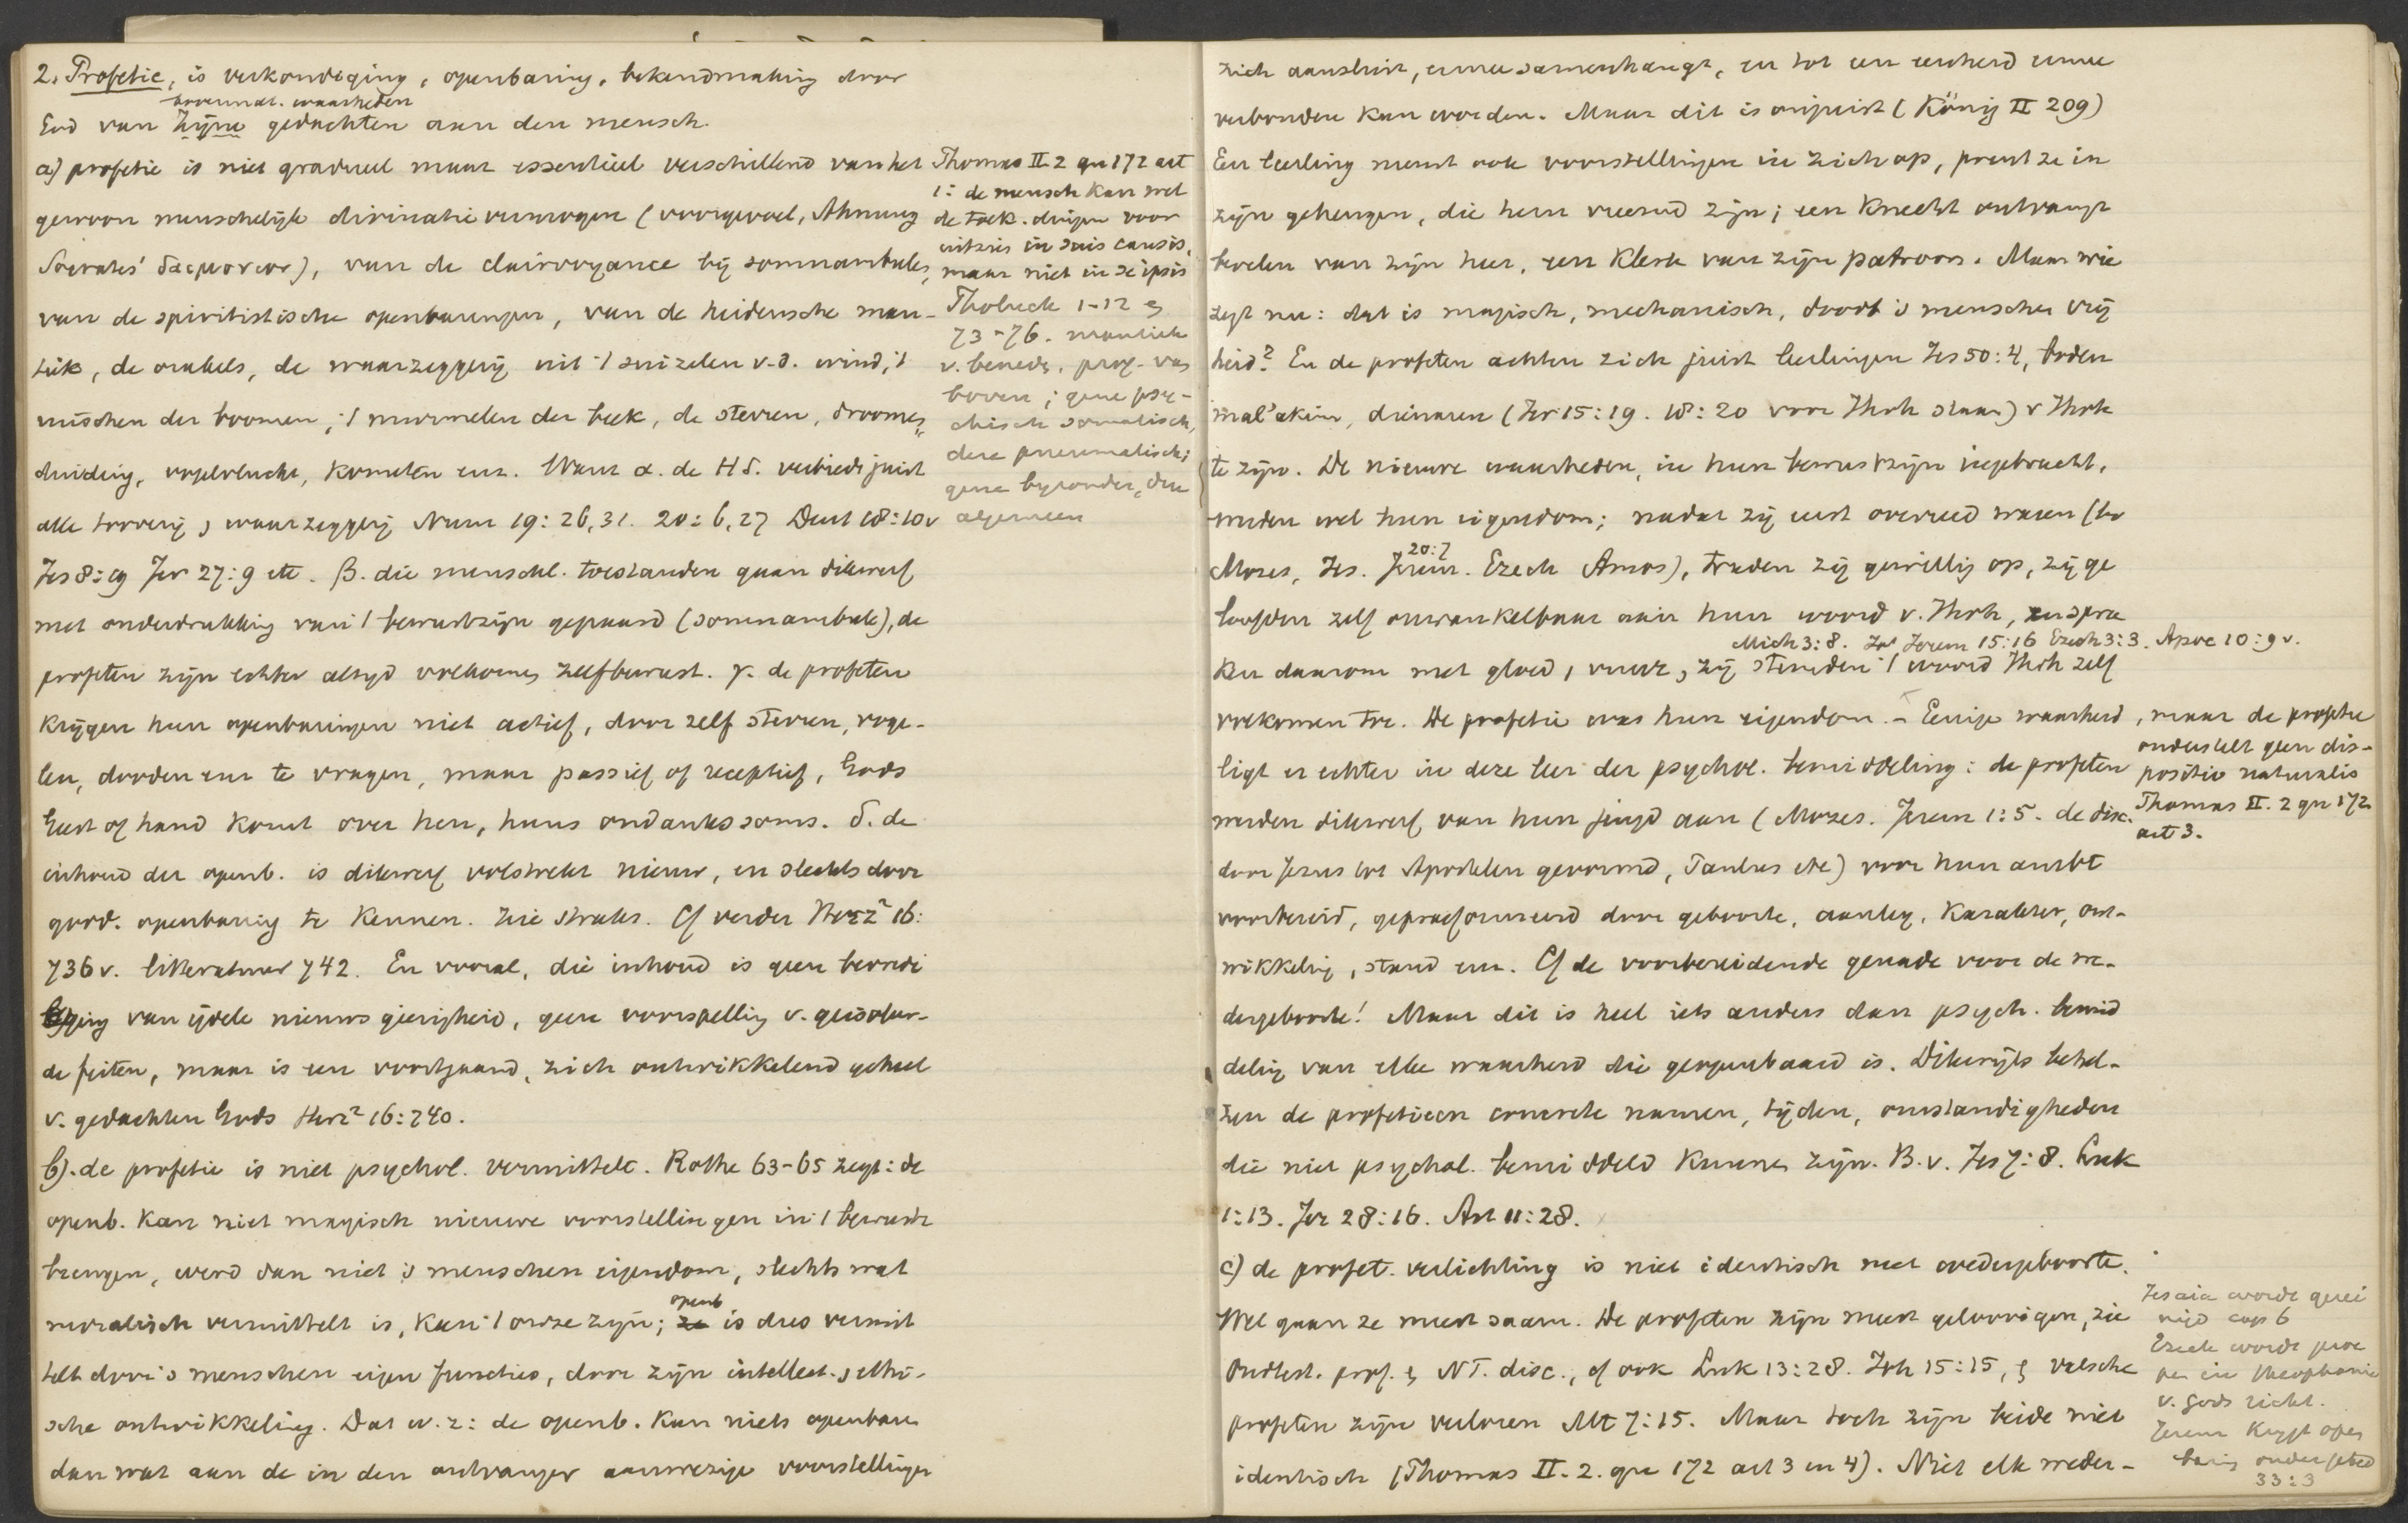 2. Profetie, is verkondiging, openbaring, bekendmaking door
bovennat. waarheden
God van Zijne gedachten aan den mensch.
a) profetie is niet gradueel maar essentieel verschillend van het
gewoon menschelijk divinatie vermogen (voorgevoel, Ahnung
Socrates' δαιμονιον), van de clairvoyance bij somnambules,
van de spiritistische openbaringen, van de heidensche man-
tiek, de orakels, de waarzeggerij uit 't suizelen v.d. wind, 't
ruischen der boomen, 't murmelen der beek, de sterren, droomen,
duiding, vogelvlucht, kometen enz. Want α. de H S. verbiedt juist
alle tooverij, waarzeggerij Num 19:26,31. 20:6,27 Deut 18:10v
Jes 8:19 Jer 27:9 etc. β. die menschl. toestanden gaan dikwerf
met onderdrukking van 't bewustzijn gepaard (somnambule), de
profeten zijn echter altijd volkomen zelfbewust. γ. de profeten
krijgen hun openbaringen niet actief, door zelf sterren, voge-
len, dooden enz te vragen, maar passief of receptief, Gods
Geest of hand komt over hen, huns ondanks soms. δ. de
inhoud der openb. is dikwerf volstrekt nieuw, en slechts door
godd. openbaring te kennen. Zie straks. Cf verder Herz² 16:
736v. litteratuur 742. En vooral, die inhoud is geen bevredi
ging van ijdele nieuwsgierigheid, geen voorspelling v. geïsoleer-
de feiten, maar is een voortgaand, zich ontwikkelend geheel
v. gedachten Gods Herz² 16:740.
b). de profetie is niet psychol. vermittelt. Rothe 63-65 zegt: de
openb. kan niet magisch nieuwe voorstellingen in 't bewustz
brengen, werd dan niet 's menschen eigendom, slechts wat
moralisch vermittelt is, kan 't onze zijn; openb is dus vermit
telt door 's menschen eigen functies, door zijn intellect. ethi-
sche ontwikkeling. Dat w.z: de openb. kan niets openbaren
dan wat aan de in den ontvanger aanwezige voorstellingen
Thomas II.2 qu 172 art
1: de mensch kan wel
de toek. dingen voor
uitzien in suis causis,
maar niet in se ipsis
Tholuck 1-12 en
73-76. mantiek
v. beneden, prof. van
boven; gene psy-
chisch somatisch,
deze pneumatisch;
gene byzonder, deze
algemeen
zich aansluit, ermee samenhangt, en tot een eenheid ermee
verbonden kan worden. Maar dit is onjuist (König II 209)
Een leerling neemt ook voorstellingen in zich op, prent ze in
zijn geheugen, die hem vreemd zijn; een knecht ontvangt
bevelen van zijn heer, een klerk van zijn patroon. Maar wie
zegt nu: dat is magisch, mechanisch, doodt 's menschen vrij
heid? En de profeten achten zich juist leerlingen Jes 50:4, boden
mal'akim, dienaren (Jer 15:19. 18:20 voor Jhvh staan) v Jhvh
te zijn. De nieuwe waarheden, in hun bewustzijn ingebracht,
werden wel hun eigendom; nadat zij eerst overreed waren (bv
20:7
Mozes, Jes. Jerem. Ezech Amos), traden zij gewillig op, zij ge
loofden zelf onwankelbaar aan hun woord v. Jhvh, en spra
Mich 3:8. Jerem 15:16 Ezech 3:3. Apoc 10:9v.
ken daarom met gloed, vuur, zij stemden 't woord Jhvh zelf
volkomen toe. De profetie was hun eigendom. - Eenige waarheid
ligt er echter in deze leer der psychol. bemiddeling: de profeten
werden dikwerf van hun jeugd aan (Mozes. Jerem 1:5. de disc.
door Jezus tot Apostelen gevormd, Paulus etc) voor hun ambt
voorbereid, gepraeformeerd door geboorte, aanleg, karakter, ont-
wikkeling, stand enz. Cf de voorbereidende genade voor de we-
dergeboorte! Maar dit is heel iets anders dan psych. bemid
deling van elke waarheid die geopenbaard is. Dikwijls behel-
zen de profetieen concrete namen, tijden, omstandigheden
die niet psychol. bemiddeld kunnen zijn. B.v. Jes 7:8. Luk
1:13. Jer 28:16. Act 11:28.
c) de profet. verlichting is niet identisch met wedergeboorte.
Wel gaan ze meest saam. De profeten zijn meest geloovigen, zie
Oudtest. prof. en NT. disc., cf ook Luk 13:28. Joh 15:15, en valsche
profeten zijn verloren Mt 7:15. Maar toch zijn beide niet
identisch (Thomas II.2. qu 172 art 3 en 4). Niet elk weder-
, maar de profetie
onderstelt geen dis-
positio naturalis
Thomas II.2 qu 172
art 3.
Jesaia wordt gerei
nigd cap 6
Ezech wordt
in theophanie
v. Gods
Jerem krijgt open
baring onder gebed
33:3